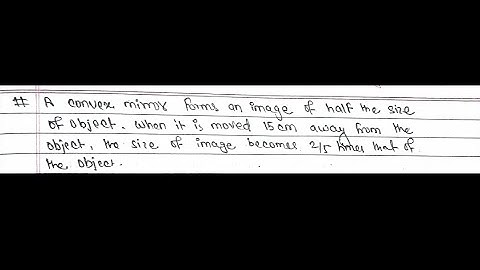 # A convex mirror forms an image of half the size
of object. When it is moved 15 cm away from the
object, the size of image becomes 2/5 times that of
the object.